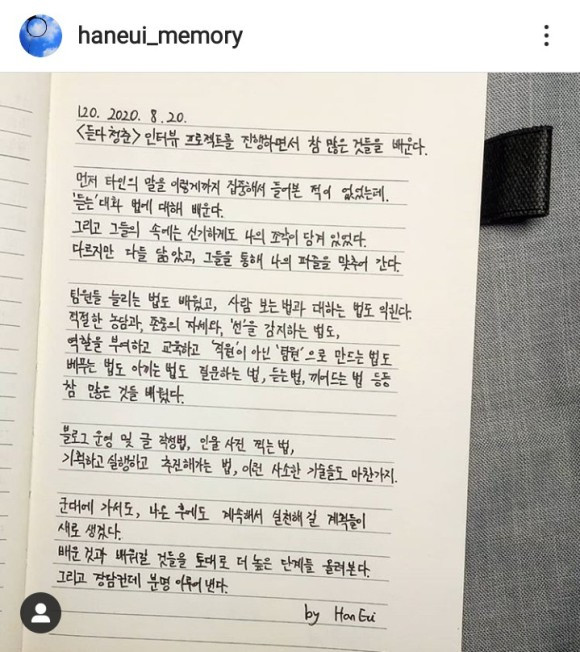 haneui_memory
120. 2020. 8. 20.
<듣다 청춘> 인터뷰 프로젝트를 진행하면서 참 많은 것들을 배운다.
먼저 타인의 말을 이렇게까지 집중해서 들어본 적이 없었는데.
'듣는' 대화 법에 대해 배운다.
그리고 그들의 속에는 신기하게도 나의 조각이 담겨 있었다.
다르지만 다들 닮았고, 그들을 통해 나의 퍼즐을 맞추어 간다.
팀원들 늘리는 법도 배웠고, 사람 보는 법과 대하는 법도 익힌다.
적절한 농담과, 존중의 자세와, '선'을 감지하는 법도,
역할을 부여하고 교육하고 '직원'이 아닌 '팀원'으로 만드는 법도
베푸는 법도 아끼는 법도 질문하는 법, 듣는 법, 끼어드는 법 등등
참 많은 것들 배웠다.
블로그 운영 및 글 작성법, 인물 사진 찍는 법,
기획하고 실행하고 추진해가는 법, 이런 사소한 기술들도 마찬가지.
군대에 가서도, 나온 후에도 계속해서 실천해 갈 계획들이
새로 생겼다.
배운 것과 배워갈 것들을 토대로 더 높은 단계를 올려본다.
그리고 장담컨데 분명 이루어 낸다.
by HanEui